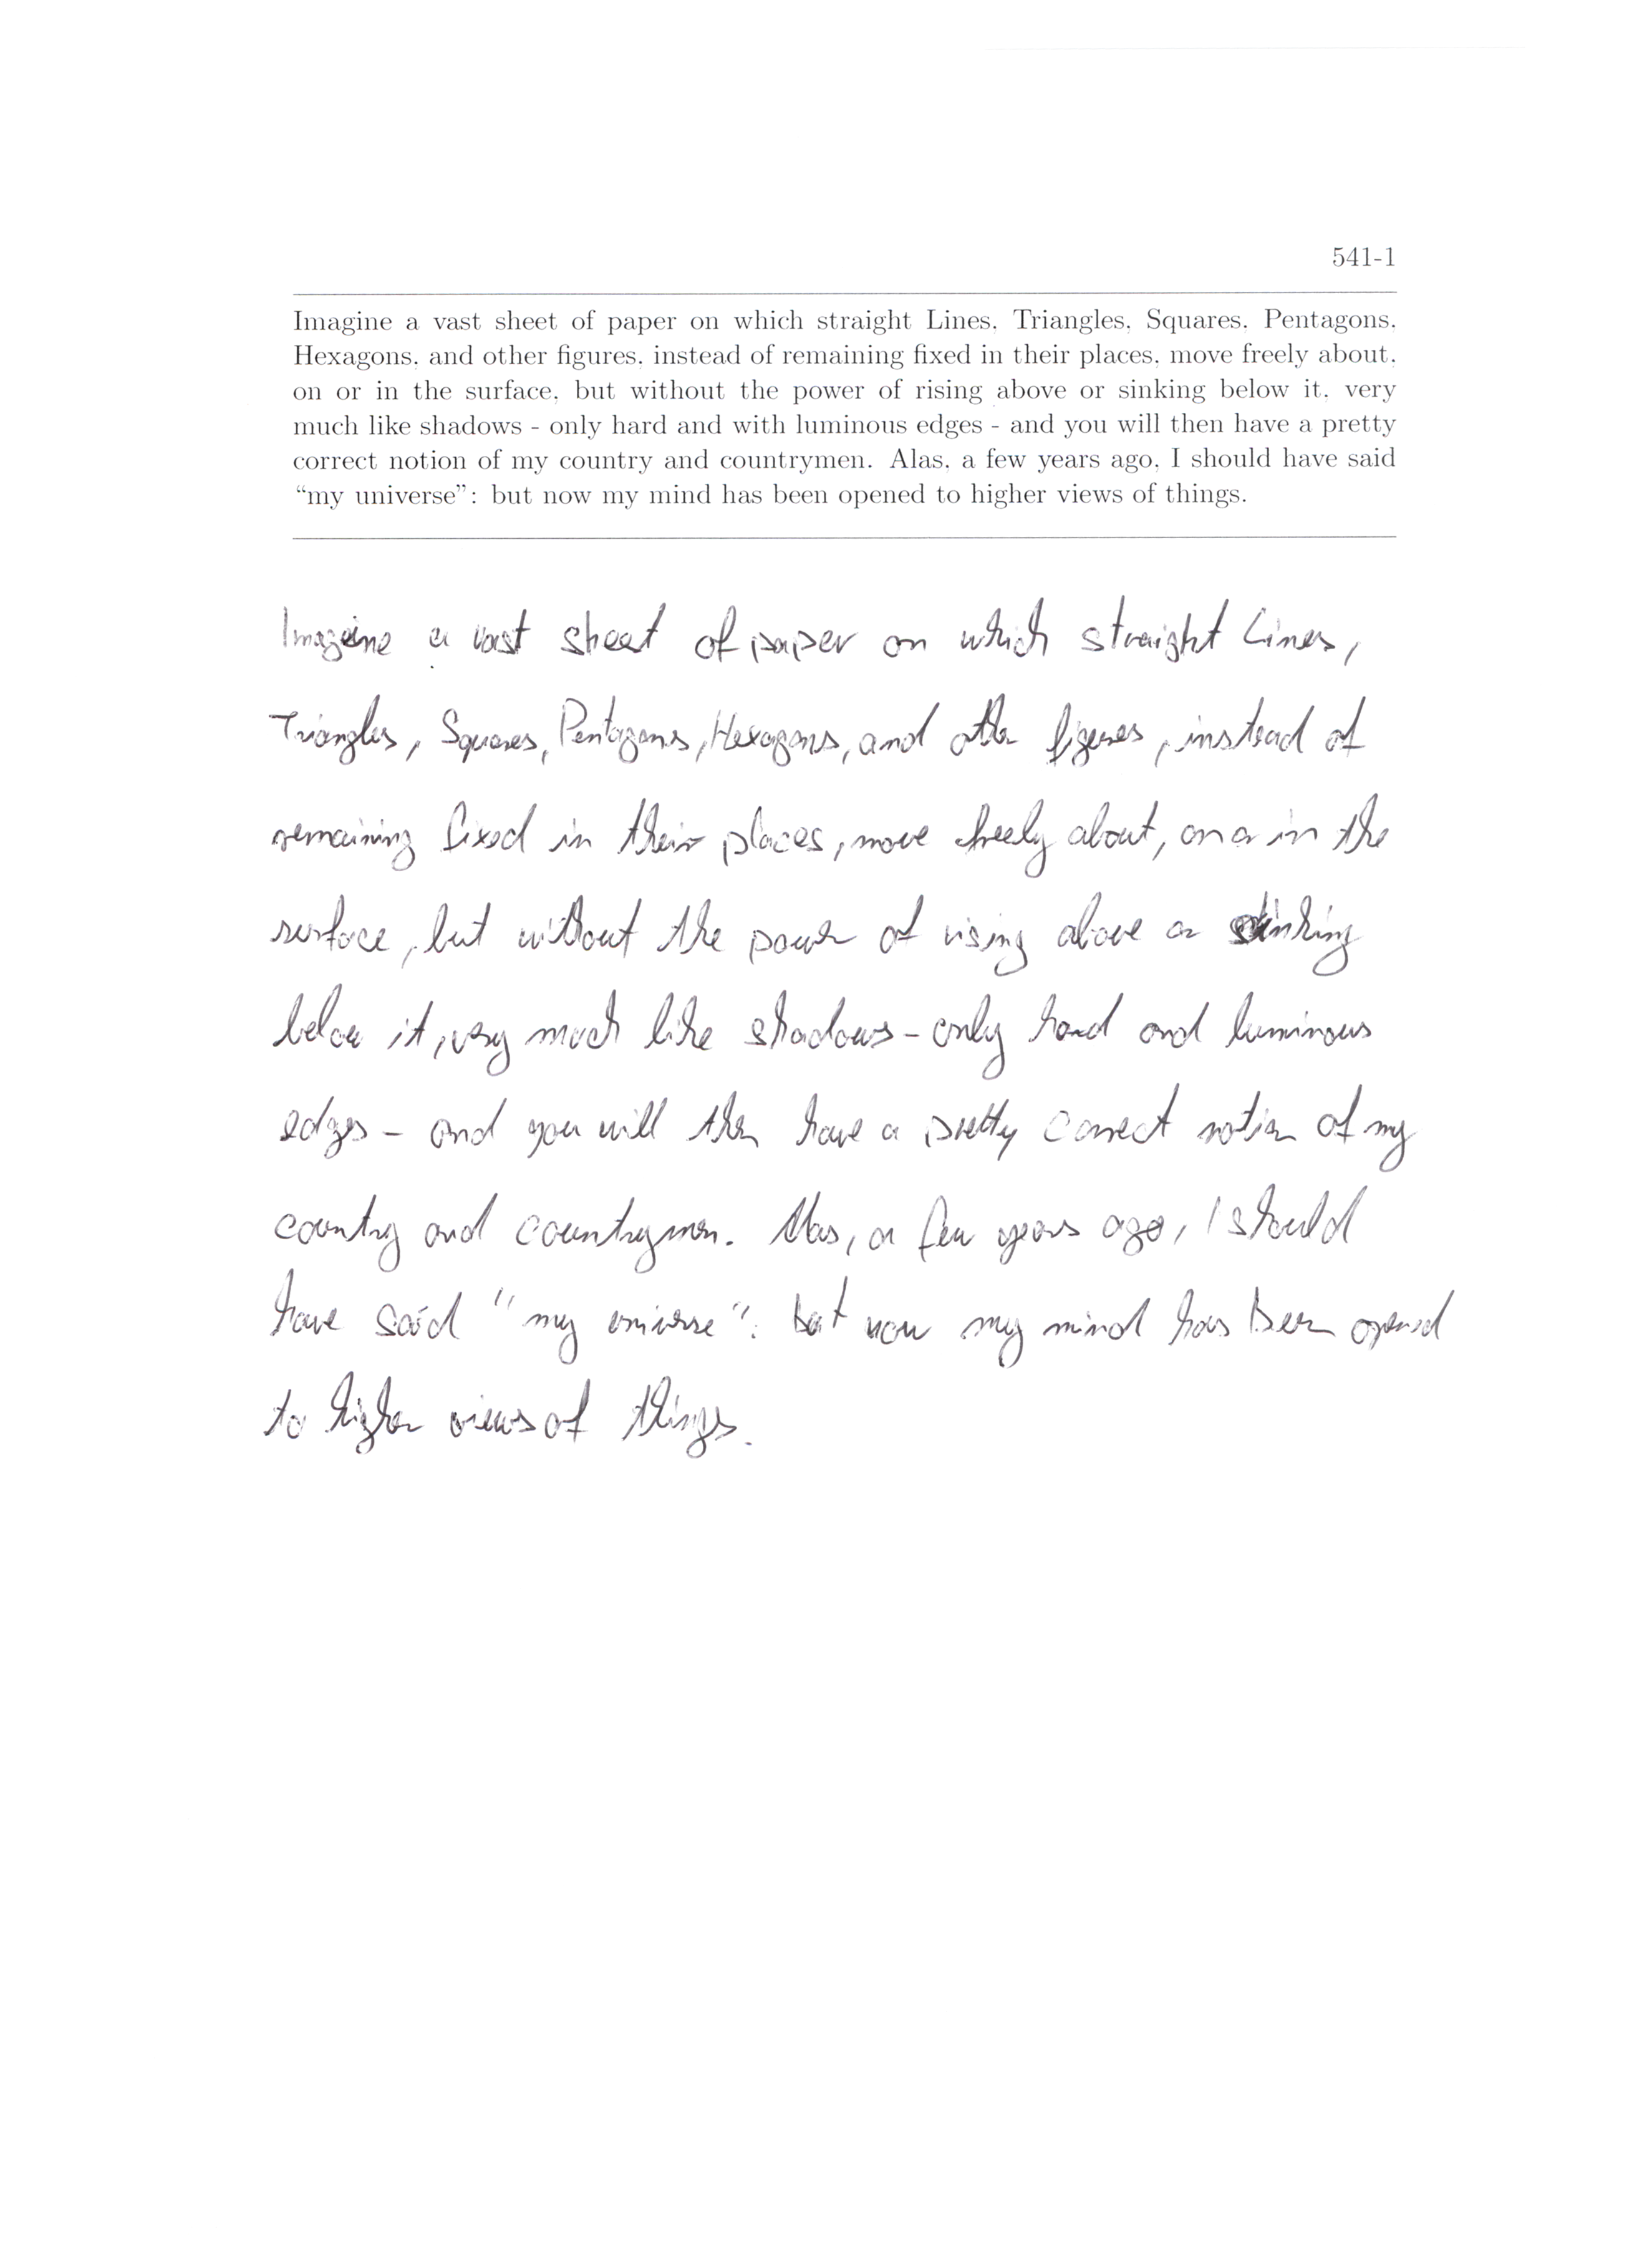 541-1
Imagine a vast sheet of paper on which straight Lines, Triangles, Squares, Pentagons,
Hexagons, and other figures, instead of remaining fixed in their places, move freely about,
on or in the surface, but without the power of rising above or sinking below it, very
much like shadows - only hard and with luminous edges - and you will then have a pretty
correct notion of my country and countrymen. Alas, a few years ago, I should have said
“my universe”: but now my mind has been opened to higher views of things.
Imagine a vast sheet of paper on which straight Lines,
Triangles, Squares, Pentagons, Hexagons, and other figures, instead of
remaining fixed in their places, move freely about, on or in the
surface, but without the power of rising above or sinking
below it, very much like shadows - only hard and luminous
edges - and you will then have a pretty correct notion of my
country and countrymen. Alas, a few years ago, I should
have said "my universe": but now my mind has been opened
to higher views of things.